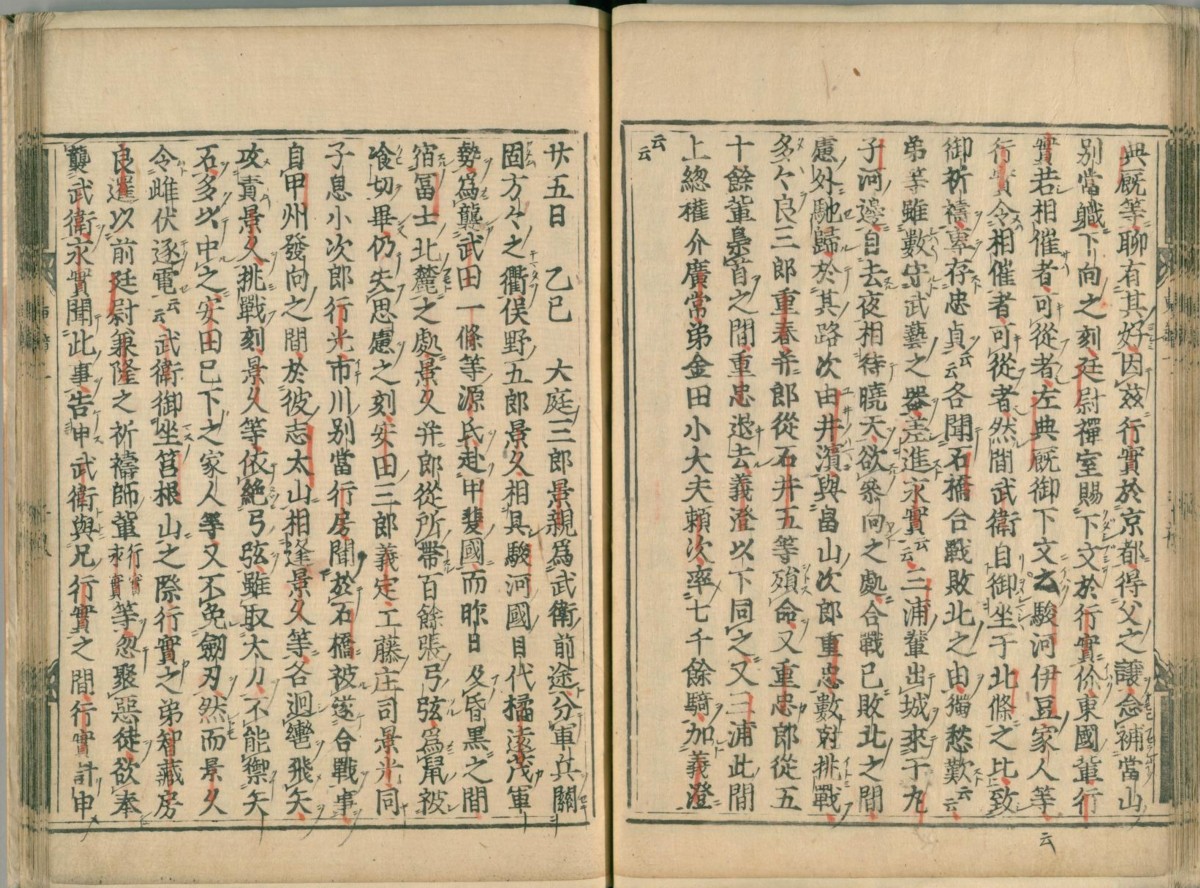 典厩等聊有其好因茲行實於京都得父之讓令補當山
別當軄下向之刻廷尉禪室賜下文於行實偁東國輩行
實若相催者可從者左典厩御下文云駿河伊豆家人等
行實令相催者可從者然間武衛自御坐于北條之比致
御祈禱專存忠貞云云各聞石橋合戰敗北之由獨愁歎云云
弟等雖數守武藝之器差進永實云云三浦輩出城來于丸
子河邊自去夜相待曉天欲參向之處合戰已敗北之間
慮外馳歸於其路次由井濱與畠山次郎重忠數尅挑戰
多々良三郎重春并郎從石井五等殞命又重忠郎從五
十餘輩梟首之間重忠退去義澄以下同之又三浦此間
上總權介廣常弟金田小大夫賴次率七千餘騎加義澄
云云
廿五日 乙巳 大庭三郎景親為武衛前途分軍兵關
固方々之衢俣野五郎景久相具駿河國目代橘遠茂軍
勢為襲武田一條等源氏赴甲斐國而昨日及昏黑之間
宿冨士北麓之處景久并郎從所帶百餘張弓弦為鼠被
喰切畢仍失思慮之刻安田三郎義定工藤庄司景光同
子息小次郎行光市川別當行房聞於石橋被遂合戰事
自甲州發向之間於彼志太山相逢景久等各迴轡飛矢
攻責景久挑戰刻景久等依絶弓弦雖取太刀不能禦矢
石多以中之安田已下之家人等又不免劒刃然而景久
令雌伏逐電云云武衛御坐筥根山之際行實之弟智藏房
良暹以前廷尉兼隆之祈禱師輩行實永實等忽聚惡徒欲奉
襲武衛永實聞此事告申武衛與兄行實之間行實計申